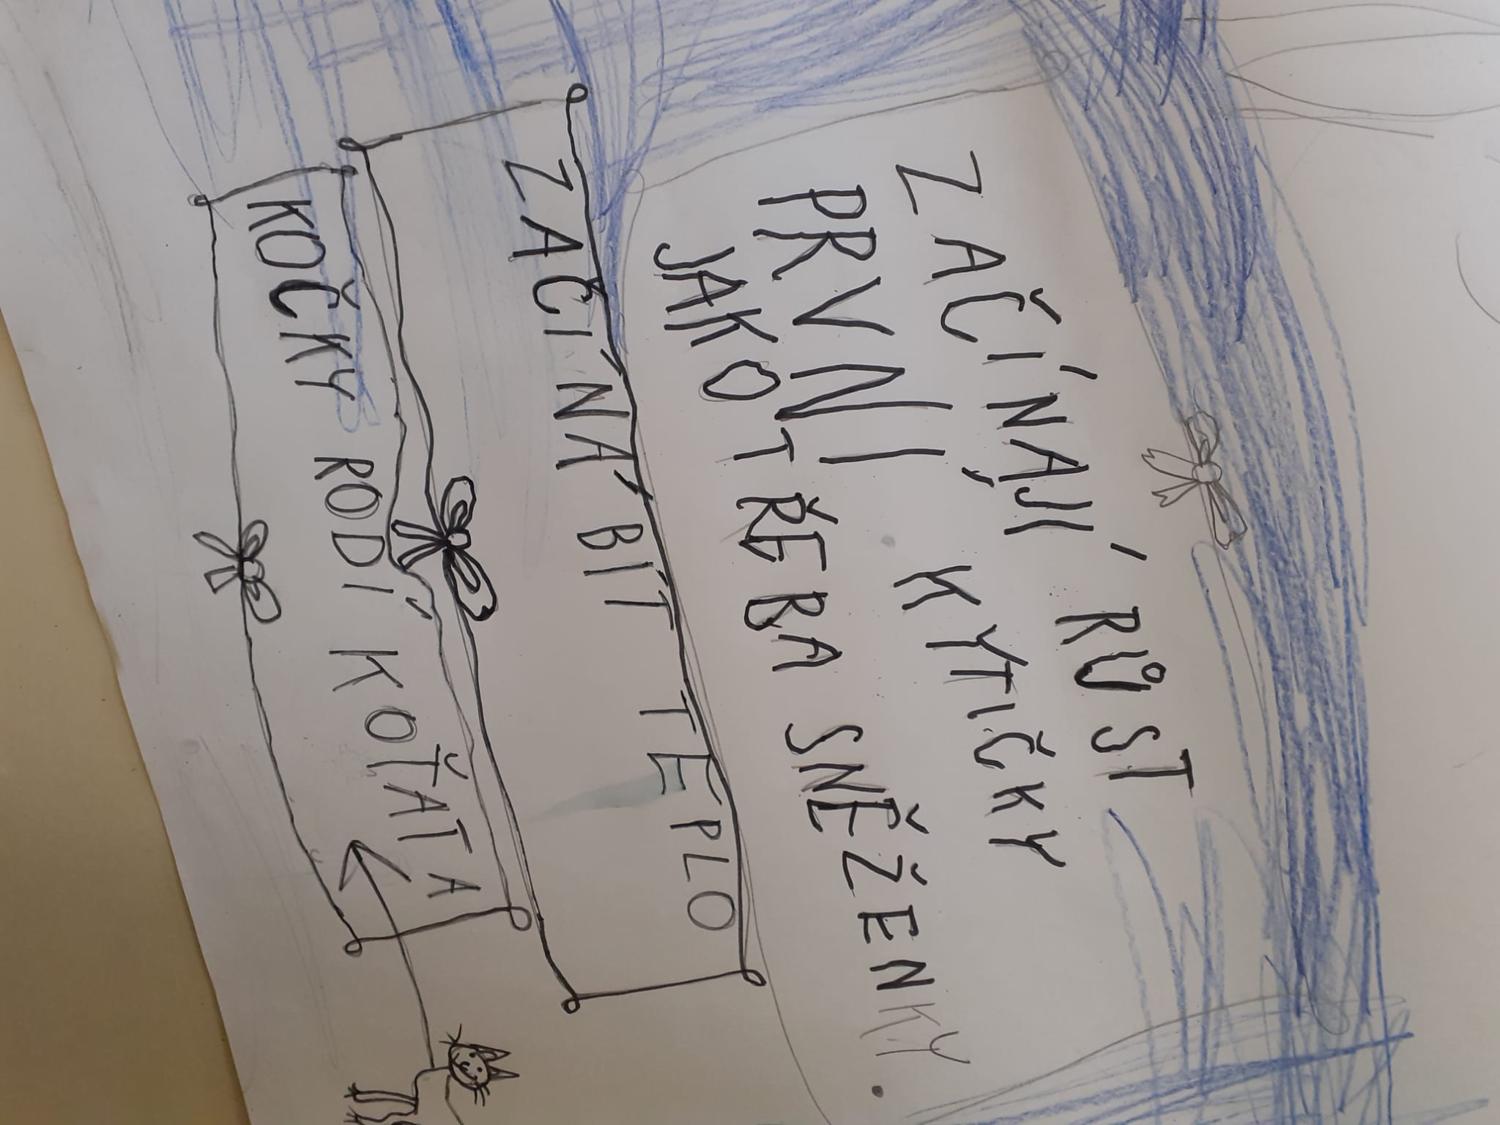 ZAČÍNAJÍ RŮST
PRVNÍ KYTIČKY
JAKO TŘEBA SNĚŽENKY.
ZAČÍNÁ BÍT TEPLO
KOČKY RODÍ KOŤATA